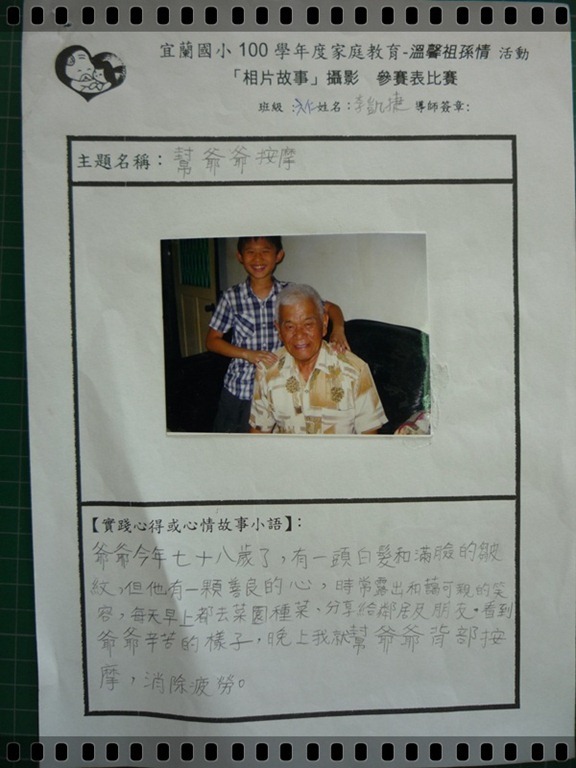 宜蘭國小 100 學年度家庭教育-溫馨祖孫情 活動
「相片故事」攝影 參賽表比賽
班級：六仁姓名：李凱捷 導師簽章：
主題名稱：幫爺爺按摩
【實踐心得或心情故事小語】：
爺爺今年七十八歲了，有一頭白髮和滿臉的皺
紋。但他有一顆善良的心，時常露出和藹可親的笑
容，每天早上都去菜園種菜、分享給鄰居及朋友。看到
爺爺辛苦的樣子，晚上我就幫爺爺背部按
摩，消除疲勞。